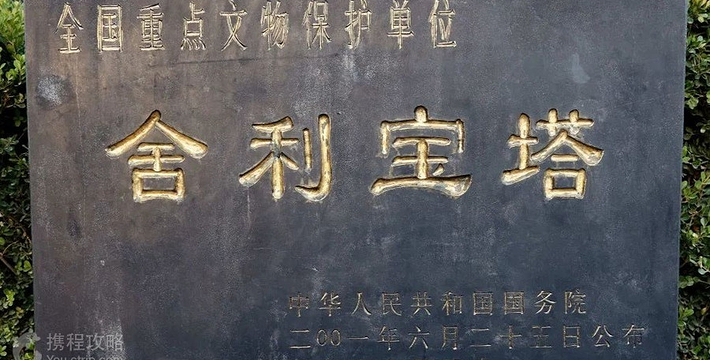 全国重点文物保护单位
舍利宝塔
中华人民共和国国务院
二〇〇一年六月二十五日公布
携程攻略
You.ctrip.com